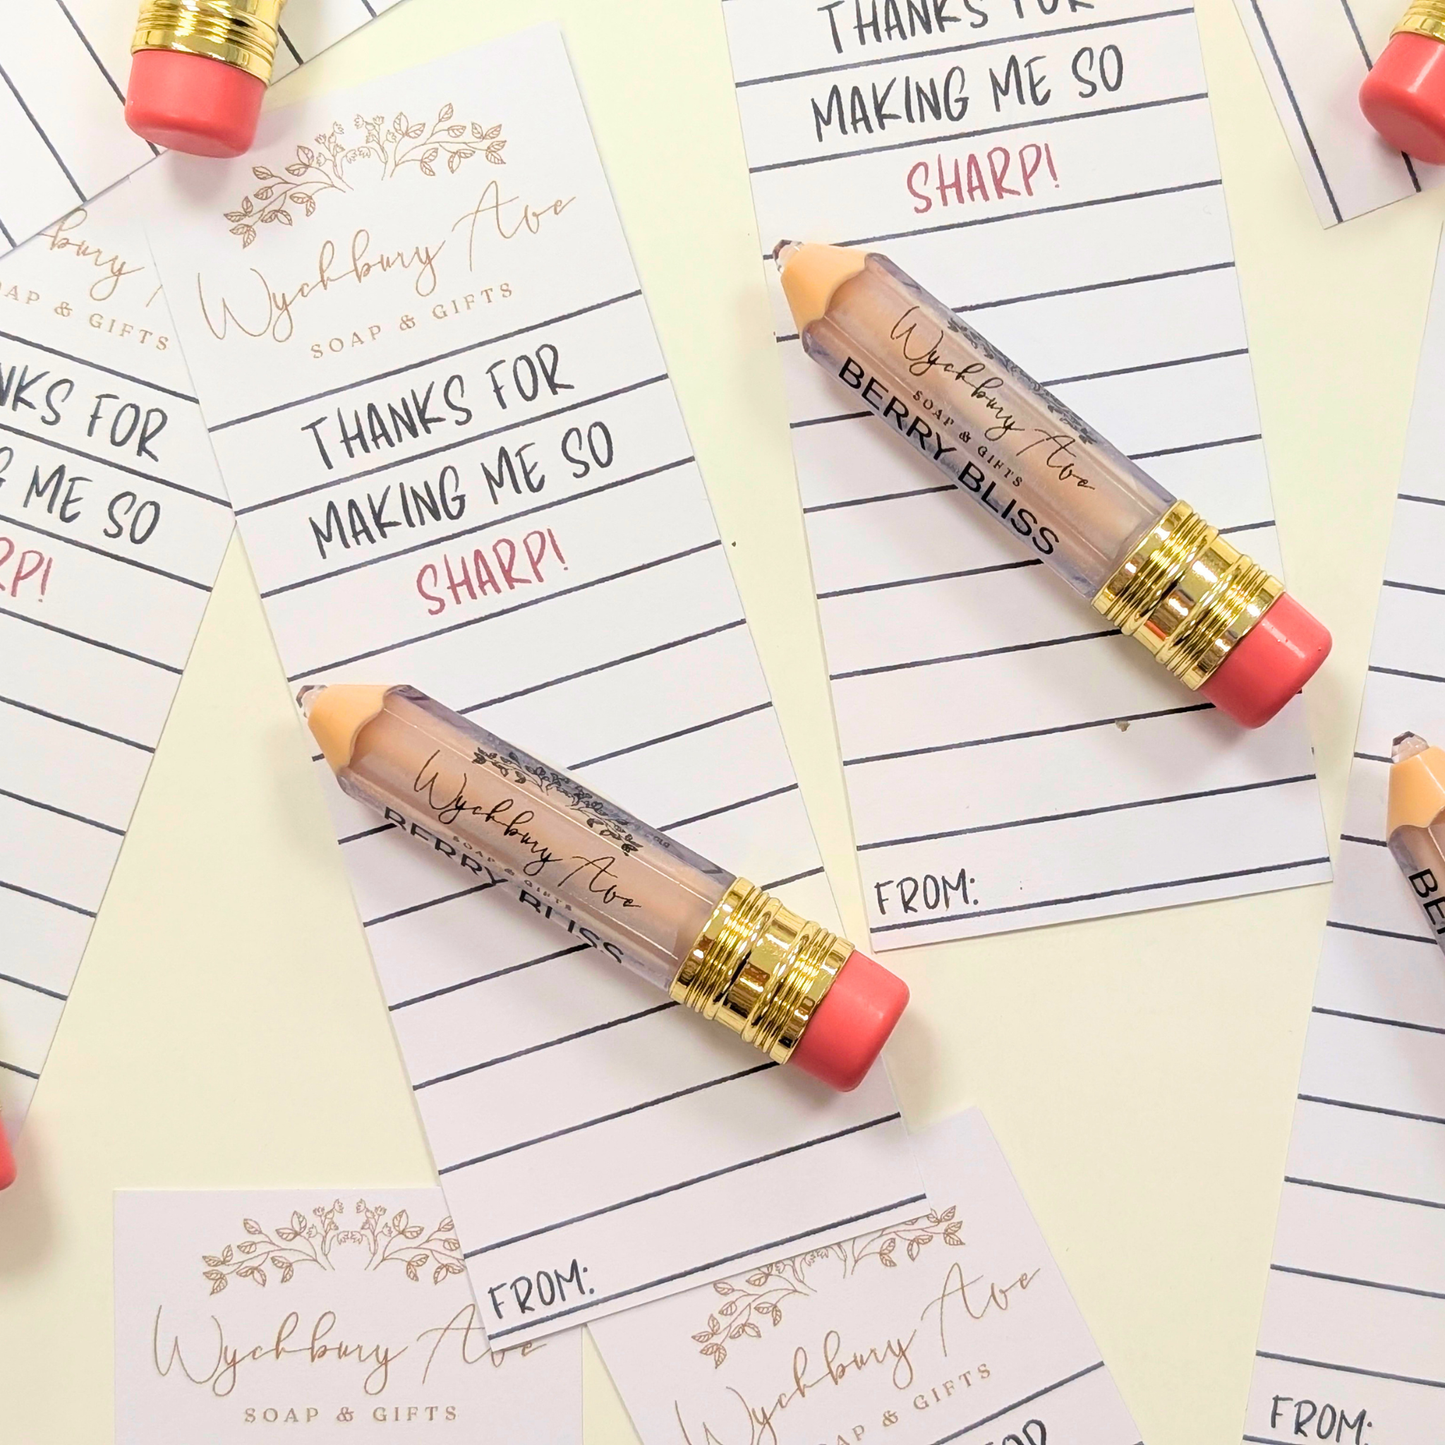 THANKS FOR
MAKING ME SO
SHARP!
Wychbury Ave
SOAP & GIFTS
BERRY BLISS
FROM:
Wychbury Ave
SOAP & GIFTS
THANKS FOR
MAKING ME SO
SHARP!
Wychbury Ave
SOAP & GIFTS
BERRY BLISS
FROM:
bury
SOAP & GIFTS
NKS FOR
G ME SO
RP!
Wychbury Ave
SOAP & GIFTS
Wychbury Ave
SOAP & GIFTS
FOR
BE
FROM: